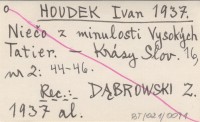 o HOUDEK Ivan 1937.
Niečo z minulosti Vysokých
Tatier. — Krásy Slov. 16,
nr 2: 44-46.
Rec.: DĄBROWSKI Z.
1937 al.